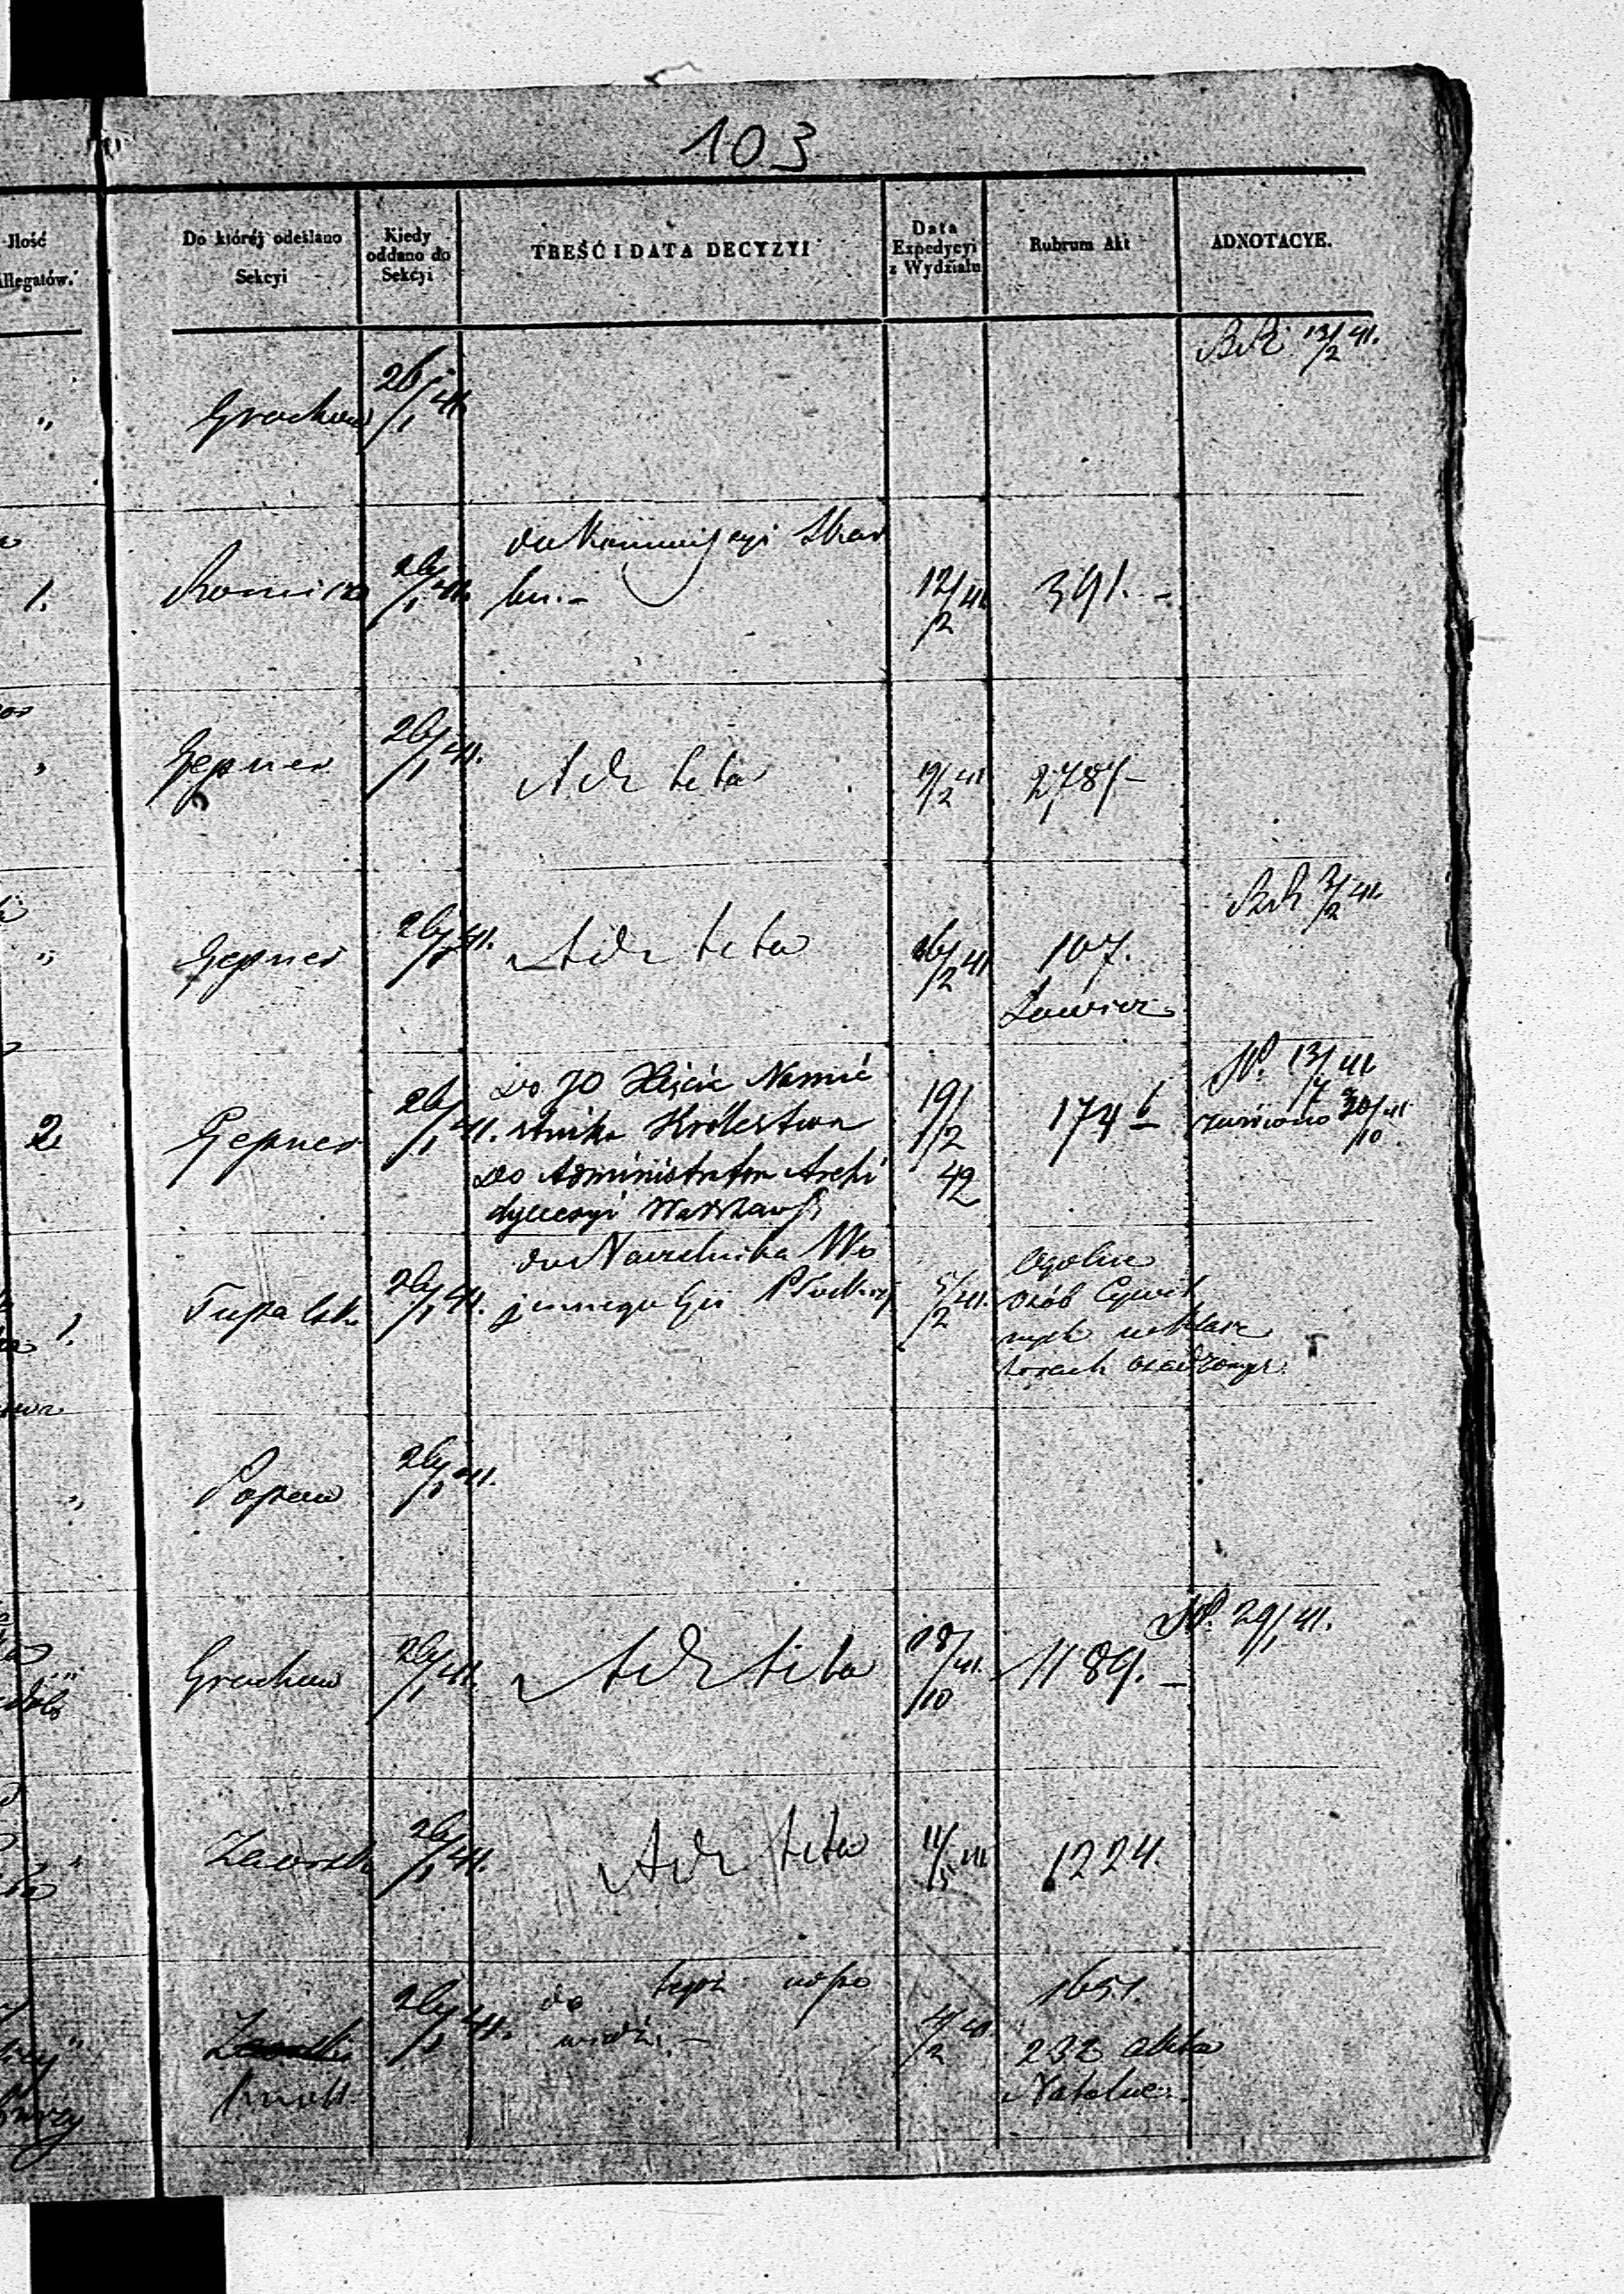 103
Jlość Allegatów.
Do któréj odesłano Sekcyi
Kiedy oddano do Sekcyi
TREŚĆ I DATA DECYZYI
Data Expedycyi z Wydziału
Rubrum Akt
ADNOTACYE.
13/2 41.
"
Grochow
26/1 41.
1.
26/1 41.
do Kommissyi Skar
bu. -
12/2 41
391. -
Gepner
26/1 41.
Ad acta
19/2 41
"
Gepner
26/1 41.
Ad acta
16/2 41
107.
2/2 41.
2
Gepner
26/1 41.
Do JO Xięcia Namie
stnika Królestwa
Do Administratora Archi
dyecezyi Warszawsk
19/2
42
174 b
13/7 41
zwrócono 30/10 41
1.
Tupalsk
26/1 41.
do Naczelnika Wo
jennego Gu Płockiej
5/2 41.
Ogólne
Osób Cywil
nych w klasz
torach osadzonych
"
Popow
26/1 41.
Grochow
26/1 41.
Ad acta
18/10 41.
1189. -
29/1 41.
"
Zaorsk
26/1 41.
Ad acta
11/5 41
1224.
26/1 41.
do tegoż odpo
wiedź. -
4/2 41
1651.
232 akta
Knoll